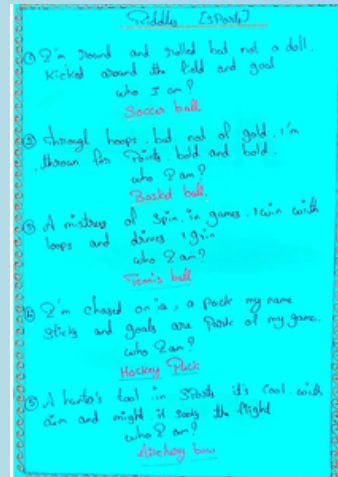 Riddles [Sports]
① I'm round and rolled but not a doll.
Kicked around the field and goal
who I am?
Soccer ball
② Through hoops, but not of gold. I'm
thrown for Points. bold and bold.
who I am?
Basket ball.
③ A mistress of Spin. in games. I win with
loops and drives I grin
who I am?
Tennis ball
④ I'm chased on ice, a puck my name
Sticks and goals are Part of my game.
who I am?
Hockey Puck
⑤ A hunter's tool in Sports it's Cool. with
aim and might. it the flight
who I am?
Archery bow